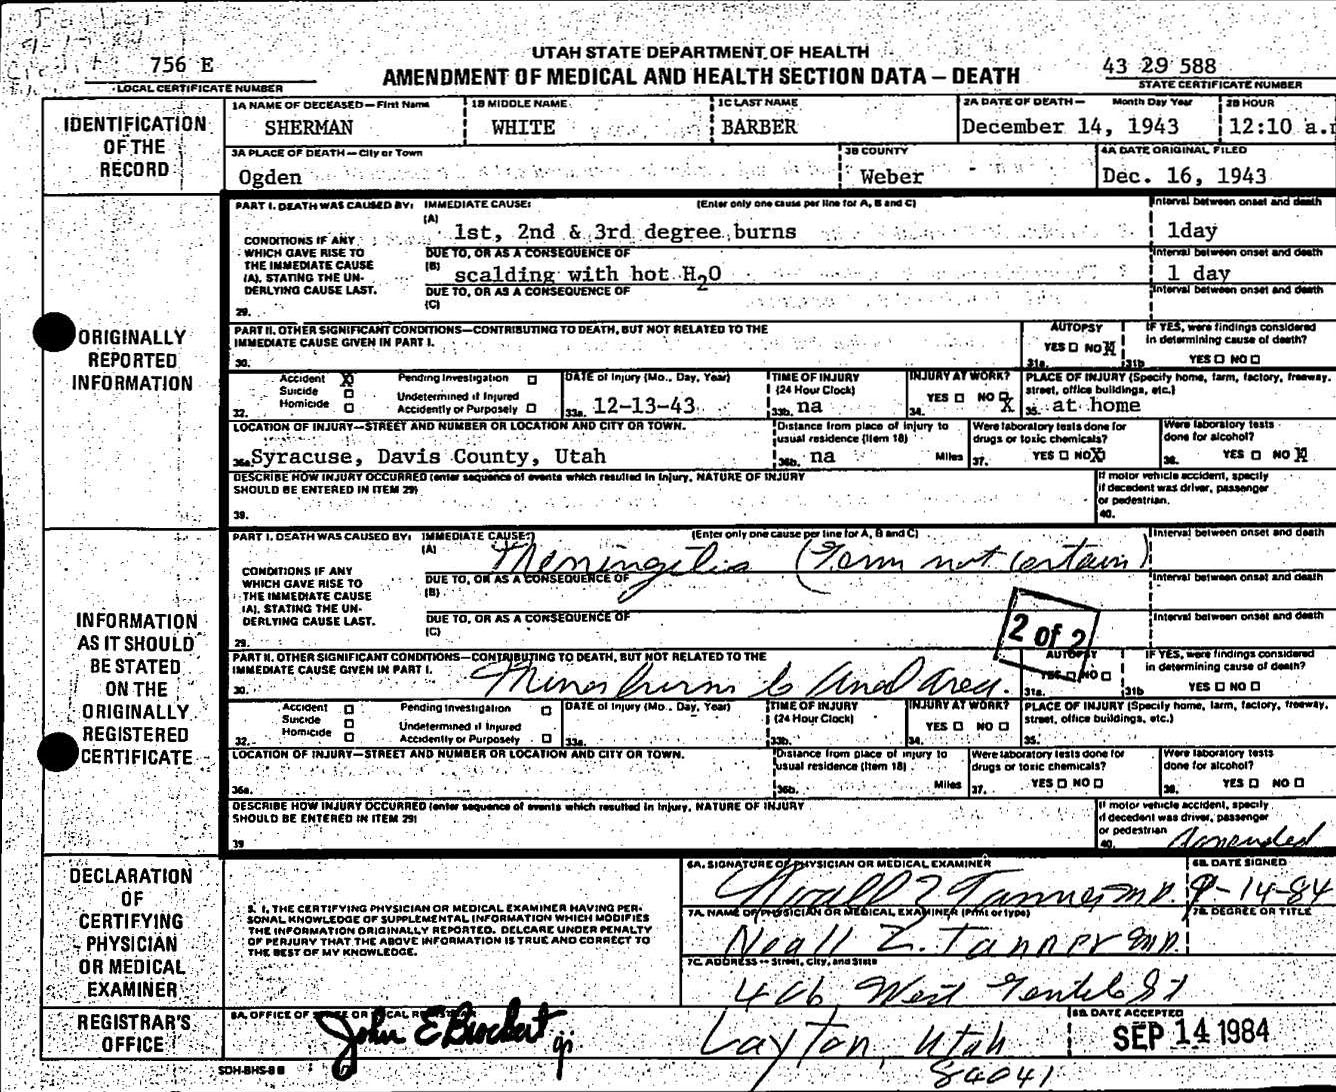 756 E
LOCAL CERTIFICATE NUMBER
UTAH STATE DEPARTMENT OF HEALTH
AMENDMENT OF MEDICAL AND HEALTH SECTION DATA – DEATH
43 29 588
STATE CERTIFICATE NUMBER
IDENTIFICATION OF THE RECORD
1A NAME OF DECEASED—First Name
SHERMAN
1B MIDDLE NAME
WHITE
1C LAST NAME
BARBER
2A DATE OF DEATH— Month Day Year
December 14, 1943
2B HOUR
12:10 a.
3A PLACE OF DEATH—City or Town
Ogden
3B COUNTY
Weber
4A DATE ORIGINAL FILED
Dec. 16, 1943
ORIGINALLY REPORTED INFORMATION
PART I. DEATH WAS CAUSED BY: IMMEDIATE CAUSE: (Enter only one cause per line for A, B and C)
Interval between onset and death
CONDITIONS IF ANY
WHICH GAVE RISE TO
THE IMMEDIATE CAUSE
(A). STATING THE UN-
DERLYING CAUSE LAST.
29.
(A) 1st, 2nd & 3rd degree burns
1day
DUE TO, OR AS A CONSEQUENCE OF
Interval between onset and death
(B) scalding with hot H2O
1 day
DUE TO, OR AS A CONSEQUENCE OF
Interval between onset and death
(C)
PART II. OTHER SIGNIFICANT CONDITIONS—CONTRIBUTING TO DEATH, BUT NOT RELATED TO THE
IMMEDIATE CAUSE GIVEN IN PART I.
30.
AUTOPSY
YES ☐ NO ☒
31a.
IF YES, were findings considered
in determining cause of death?
31b YES ☐ NO ☐
Accident ☒
Suicide ☐
Homicide ☐
32.
Pending Investigation ☐
Undetermined if Injured
Accidently or Purposely ☐
DATE of Injury (Mo., Day, Year)
33a. 12-13-43
TIME OF INJURY
(24 Hour Clock)
33b. na
INJURY AT WORK?
YES ☐ NO ☒
34.
PLACE OF INJURY (Specify home, farm, factory, freeway,
street, office buildings, etc.)
35. at home
LOCATION OF INJURY—STREET AND NUMBER OR LOCATION AND CITY OR TOWN.
36a. Syracuse, Davis County, Utah
Distance from place of injury to
usual residence (Item 18)
36b. na Miles
Were laboratory tests done for
drugs or toxic chemicals?
37. YES ☐ NO ☒
Were laboratory tests
done for alcohol?
38. YES ☐ NO ☒
DESCRIBE HOW INJURY OCCURRED (enter sequence of events which resulted in Injury, NATURE OF INJURY
SHOULD BE ENTERED IN ITEM 29)
39.
If motor vehicle accident, specify
if decedent was driver, passenger
or pedestrian.
40.
INFORMATION AS IT SHOULD BE STATED ON THE ORIGINALLY REGISTERED CERTIFICATE
PART I. DEATH WAS CAUSED BY: IMMEDIATE CAUSE: (Enter only one cause per line for A, B and C)
Interval between onset and death
CONDITIONS IF ANY
WHICH GAVE RISE TO
THE IMMEDIATE CAUSE
(A). STATING THE UN-
DERLYING CAUSE LAST.
29.
(A) Meningitis (Term not certain)
DUE TO, OR AS A CONSEQUENCE OF
Interval between onset and death
(B)
DUE TO, OR AS A CONSEQUENCE OF
Interval between onset and death
(C)
2 of 2
PART II. OTHER SIGNIFICANT CONDITIONS—CONTRIBUTING TO DEATH, BUT NOT RELATED TO THE
IMMEDIATE CAUSE GIVEN IN PART I.
30. Minor burns to anal area.
AUTOPSY
YES ☐ NO ☐
31a.
IF YES, were findings considered
in determining cause of death?
31b YES ☐ NO ☐
Accident ☐
Suicide ☐
Homicide ☐
32.
Pending Investigation ☐
Undetermined if Injured
Accidently or Purposely ☐
DATE of Injury (Mo., Day, Year)
33a.
TIME OF INJURY
(24 Hour Clock)
33b.
INJURY AT WORK?
YES ☐ NO ☐
34.
PLACE OF INJURY (Specify home, farm, factory, freeway,
street, office buildings, etc.)
35.
LOCATION OF INJURY—STREET AND NUMBER OR LOCATION AND CITY OR TOWN.
36a.
Distance from place of injury to
usual residence (Item 18)
36b. Miles
Were laboratory tests done for
drugs or toxic chemicals?
37. YES ☐ NO ☐
Were laboratory tests
done for alcohol?
38. YES ☐ NO ☐
DESCRIBE HOW INJURY OCCURRED (enter sequence of events which resulted in Injury, NATURE OF INJURY
SHOULD BE ENTERED IN ITEM 29)
39
If motor vehicle accident, specify
if decedent was driver, passenger
or pedestrian
40. Amended
DECLARATION OF CERTIFYING PHYSICIAN OR MEDICAL EXAMINER
5. I, THE CERTIFYING PHYSICIAN OR MEDICAL EXAMINER HAVING PER-
SONAL KNOWLEDGE OF SUPPLEMENTAL INFORMATION WHICH MODIFIES
THE INFORMATION ORIGINALLY REPORTED. DELCARE UNDER PENALTY
OF PERJURY THAT THE ABOVE INFORMATION IS TRUE AND CORRECT TO
THE BEST OF MY KNOWLEDGE.
6A. SIGNATURE OF PHYSICIAN OR MEDICAL EXAMINER
Noall Z Tanner M.D.
6B. DATE SIGNED
9-14-84
7A. NAME OF PHYSICIAN OR MEDICAL EXAMINER (Print or type)
Noall Z. Tanner MD.
7B. DEGREE OR TITLE
7C. ADDRESS — Street, City, and State
406 West Gentile St
Layton, Utah
84041
REGISTRAR'S OFFICE
8A. OFFICE OF STATE OR LOCAL REGISTRAR
John E Brockert
8B. DATE ACCEPTED
SEP 14 1984
SDH-BHS-8B